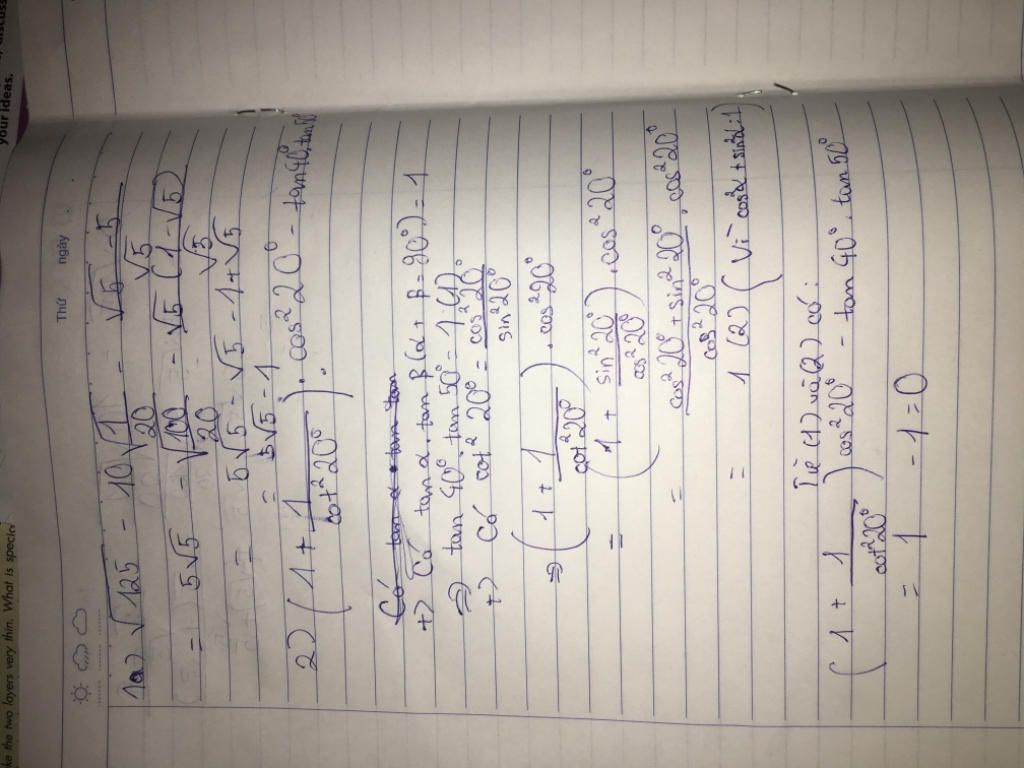 your ideas.
ke the two layers very thin. What is special
Thứ ngày
1a) √125 - 10√(1/20) - (√5 - 5)/√5
= 5√5 - √100/20 - √5(1-√5)/√5
= 5√5 - √5 - 1 + √5
= 5√5 - 1
2) (1 + 1/cot²20°) . cos²20° - tan40°.tan50°
Có tan α . tan tan
+) Có tan α . tan β (α + β = 90°) = 1
=> tan 40° . tan 50° = 1 (1)
+) Có cot² 20° = cos²20°/sin²20°
=> (1 + 1/cot²20°) . cos²20°
= (1 + sin²20°/cos²20°) . cos²20°
= (cos²20° + sin²20°)/cos²20° . cos²20°
= 1 (2) (Vì cos²α + sin²α = 1)
Từ (1) và (2) có:
(1 + 1/cot²20°) cos²20° - tan 40° . tan 50°
= 1 - 1 = 0